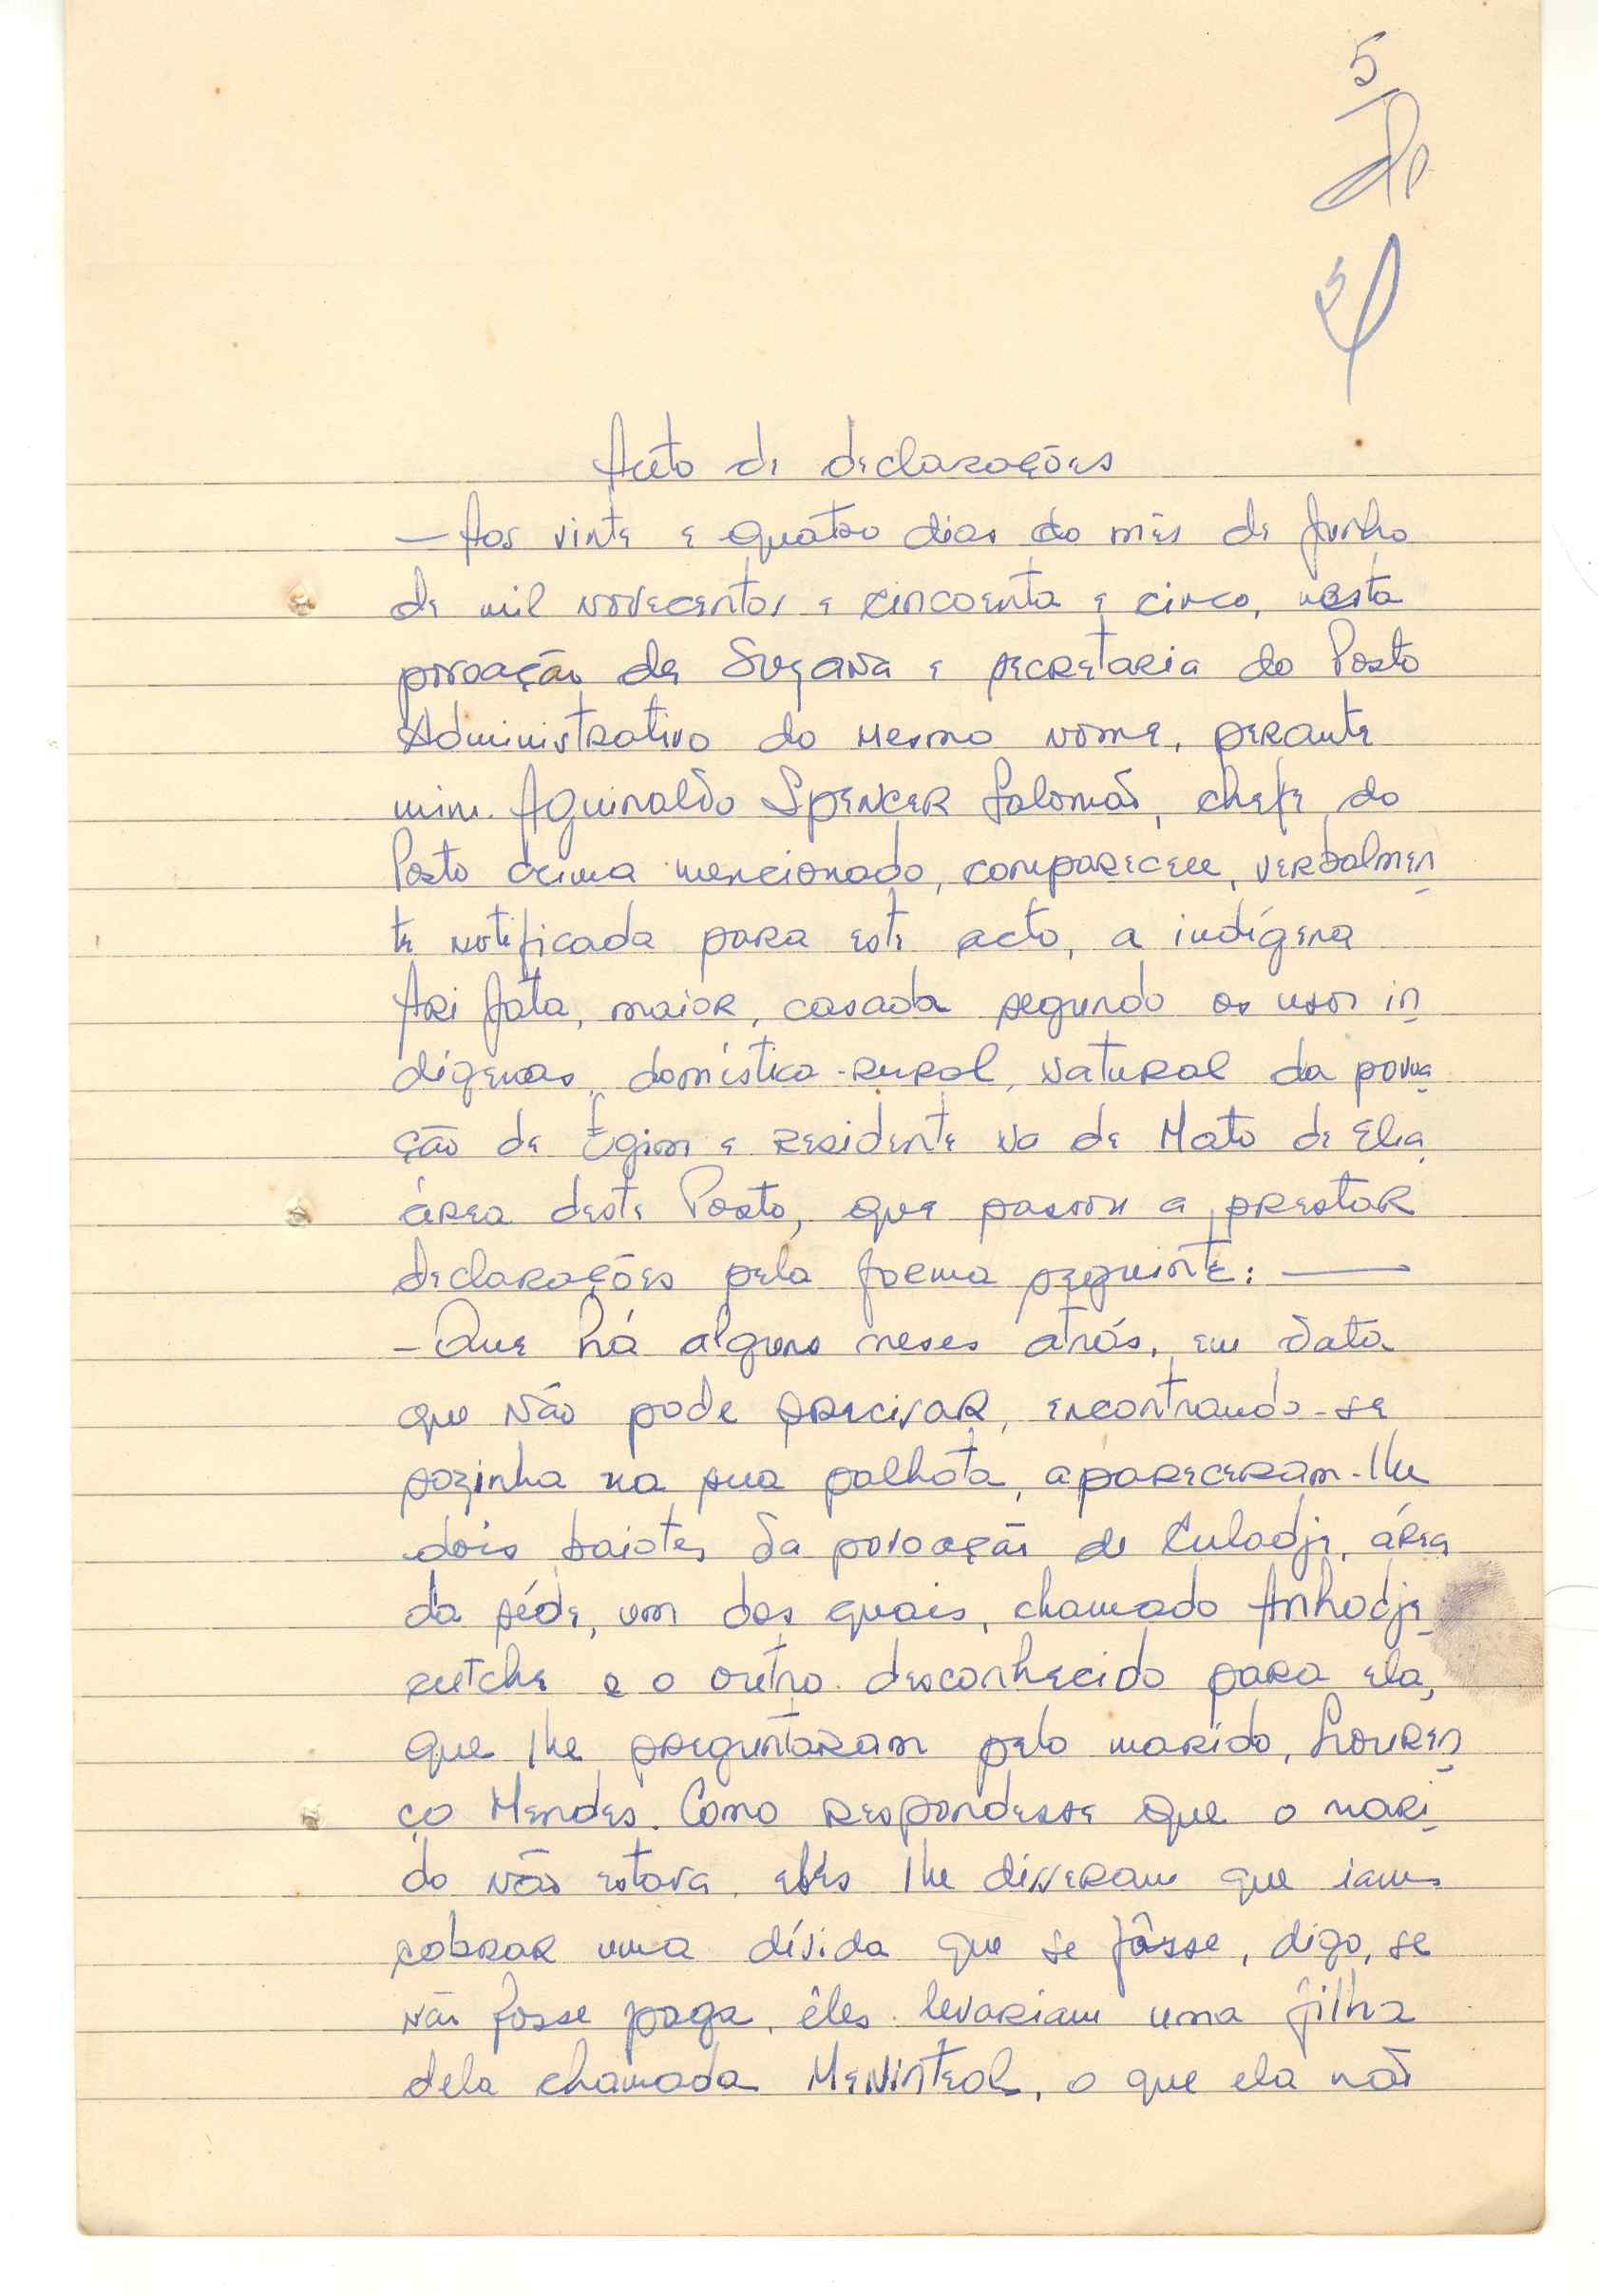 5
Auto de declarações
— Aos vinte e quatro dias do mês de Junho
de mil novecentos e cincoenta e cinco, nesta
povoação de Suzana e secretaria do Posto
Administrativo do mesmo nome, perante
mim Aguinaldo Spencer Salomão, chefe do
Posto acima mencionado, compareceu, verbalmen
te notificada para este acto, a indígena
Ari Jata, maior, casada segundo os usos in
dígenas, doméstica-rural, natural da povoa
ção de Egim e residente na de Mato de Elia
área deste Posto, que passou a prestar
declarações pela forma seguinte: —
- Que há alguns meses atrás, em data
que não pode precisar, encontrando-se
sozinha na sua palhota, apareceram-lhe
dois baiotes da povoação de Culadje, área
da séde, um dos quais, chamado Anhodje
cutche e o outro desconhecido para ela,
que lhe preguntaram pelo marido, Louren
ço Mendes. Como respondesse que o mari
do não estava, eles lhe disseram que iam
cobrar uma dívida que se fôsse, digo, se
não fosse paga, êles levariam uma filha
dela chamada Meninteol, o que ela não